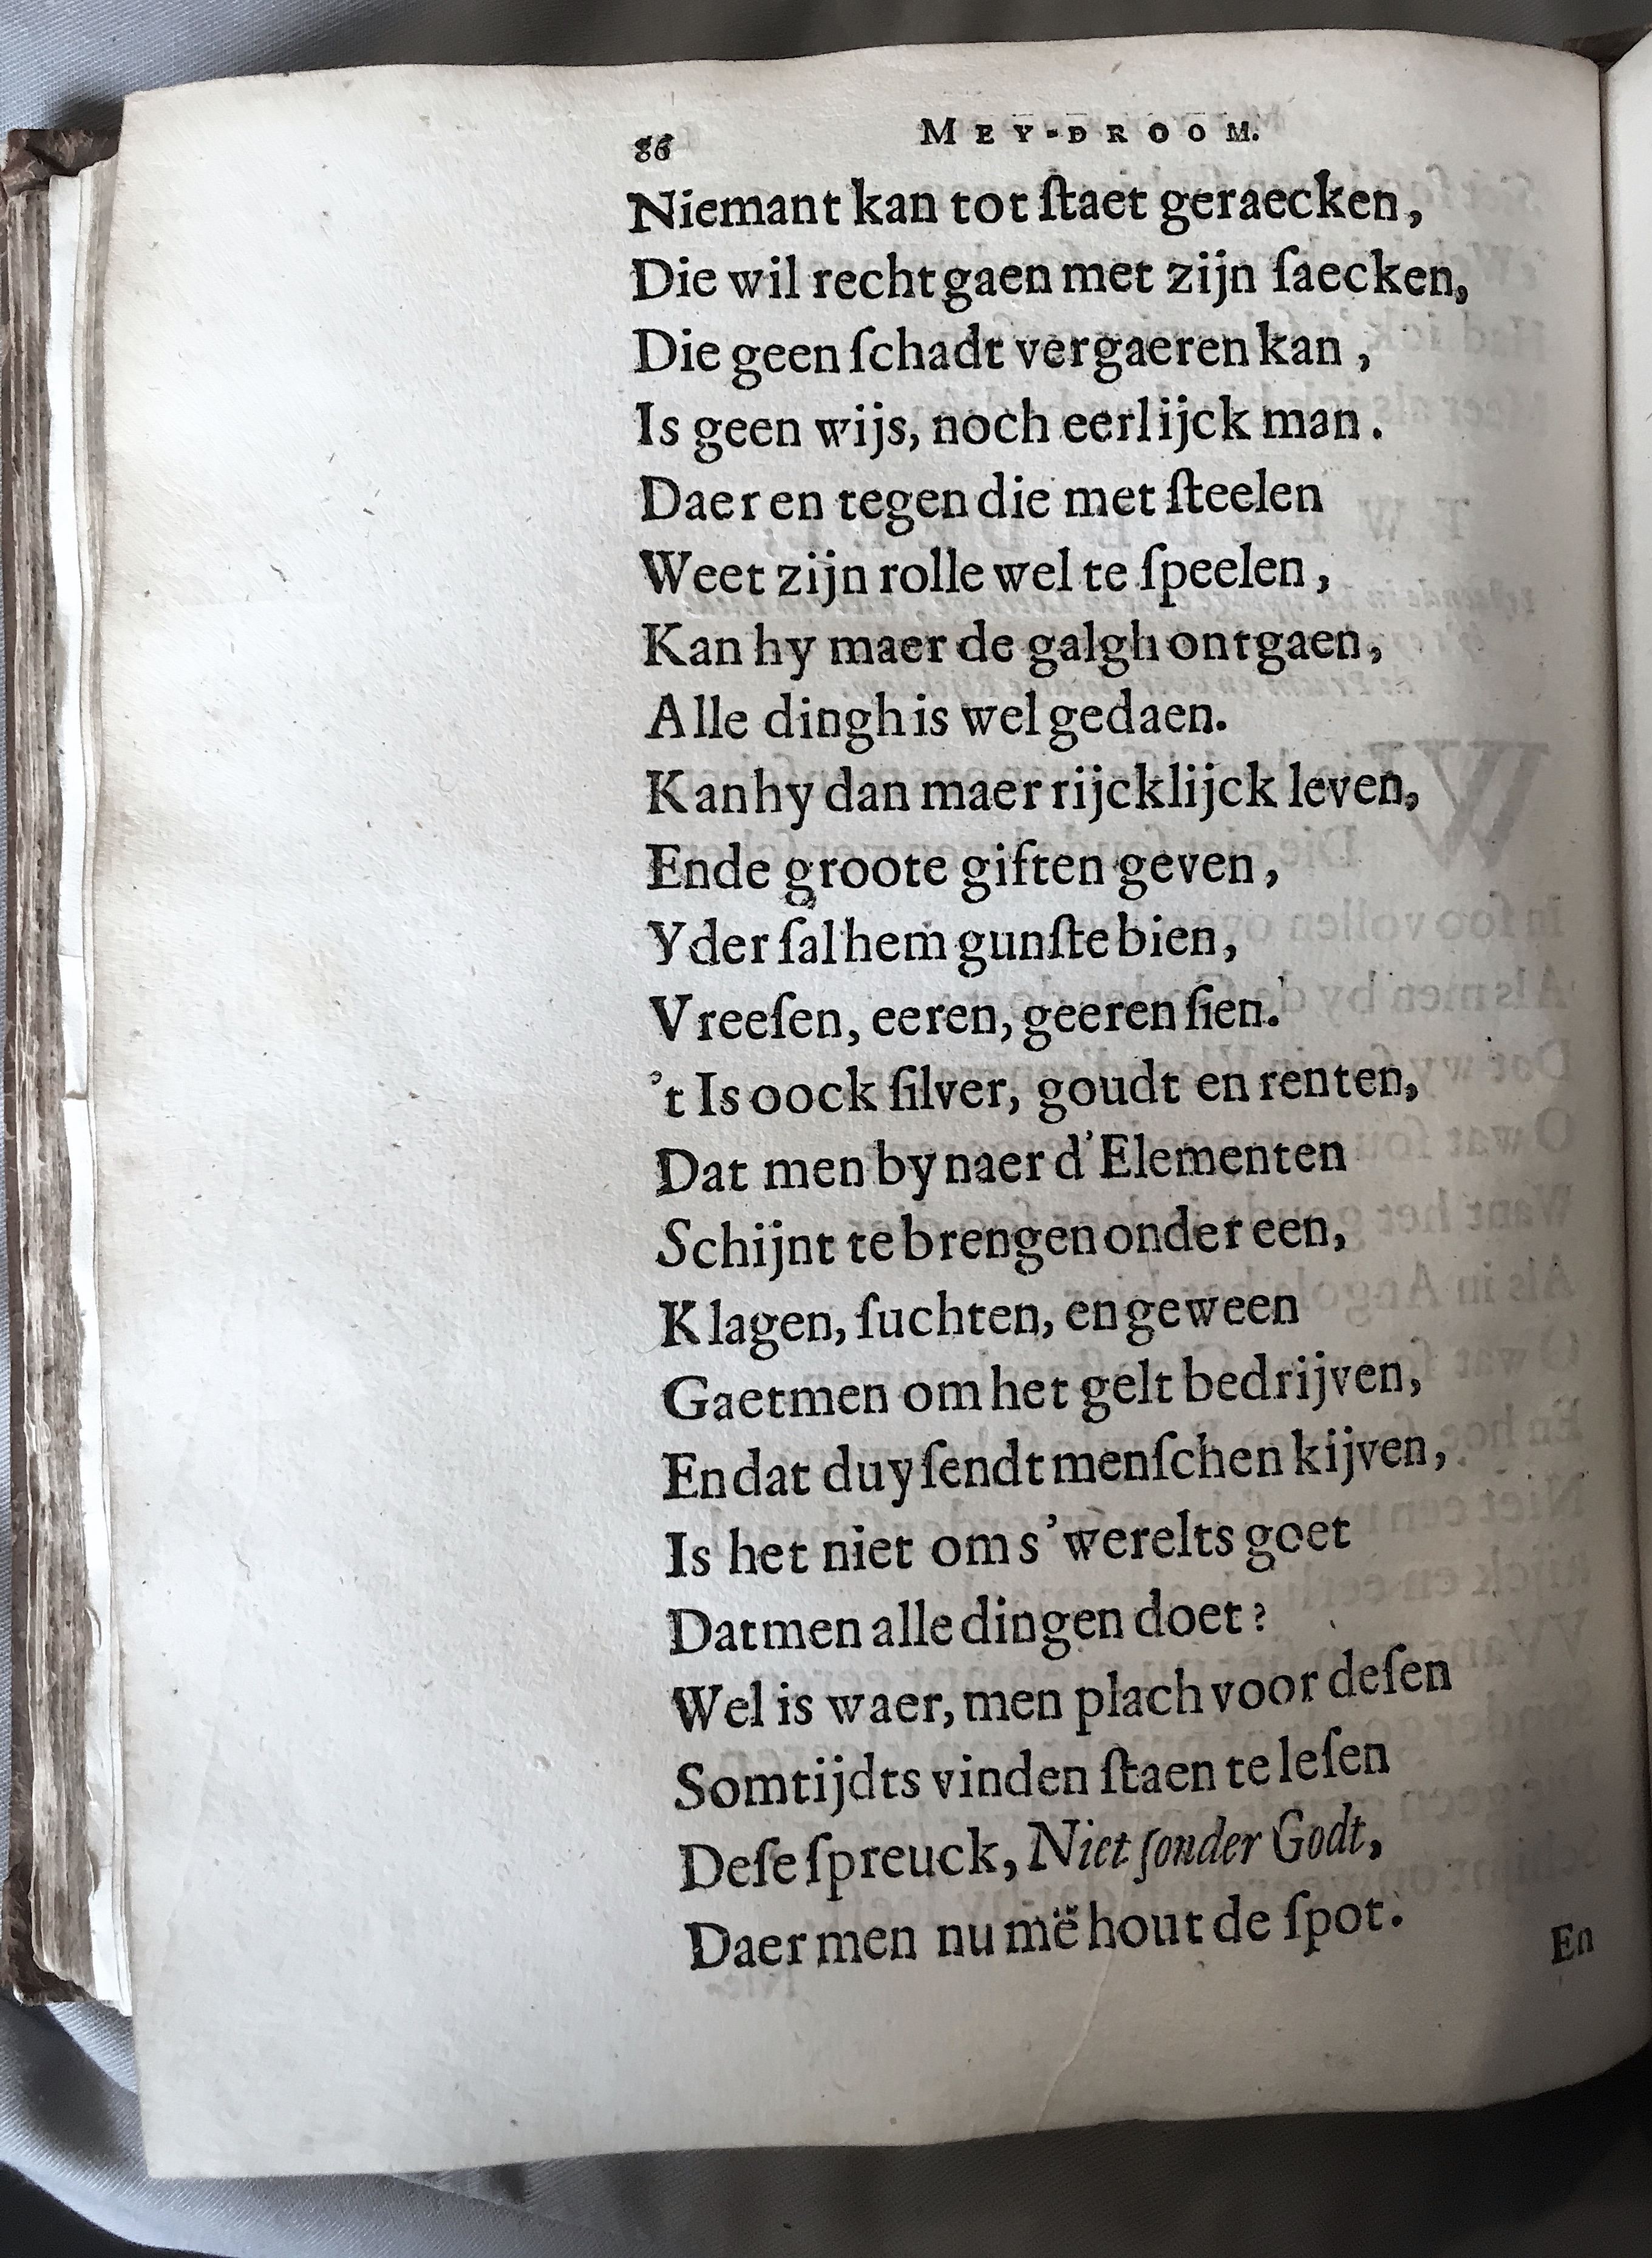 86 MEY-DROOM.
Niemant kan tot ſtaet geraecken,
Die wil recht gaen met zijn ſaecken,
Die geen ſchadt vergaeren kan,
Is geen wijs, noch eerlijck man.
Daer en tegen die met ſteelen
Weet zijn rolle wel te ſpeelen,
Kan hy maer de galgh ontgaen,
Alle dingh is wel gedaen.
Kan hy dan maer rijcklijck leven,
Ende groote giften geven,
Yder ſal hem gunſte bien,
Vreeſen, eeren, geeren ſien.
't Is oock ſilver, goudt en renten,
Dat men by naer d'Elementen
Schijnt te brengen onder een,
Klagen, ſuchten, en geween
Gaetmen om het gelt bedrijven,
En dat duyſendt menſchen kijven,
Is het niet om s'werelts goet
Datmen alle dingen doet?
Wel is waer, men plach voor deſen
Somtijdts vinden ſtaen te leſen
Deſe ſpreuck, Niet ſonder Godt,
Daer men nu më hout de ſpot.
En